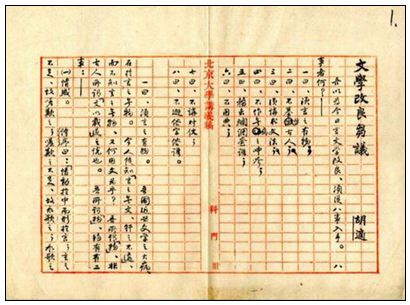 1.
文學改良芻議
胡適
吾以為今日言文學改良，須從八事入手。八
事者何？——
一曰、須言之有物。
二曰、不摹仿古人。
三曰、須講求文法。
四曰、不作無病之呻吟。
五曰、務去爛調套語。
六曰、不用典。
北京大學講義稿
科
門
七曰、不講對仗。
八曰、不避俗字俗語。
一曰、須言之有物。 吾國近世文學之大病，
在於言之無物。今人徒知「言之無文，行之不遠」，
而不知言之無物，又何用文為乎？吾所謂「物」，非
古人所謂「文以載道」之說也。吾所謂「物」，約有二
事：——
㈠情感。 詩序曰：「情動於中而形諸言。言之
不足，故嗟歎之。嗟歎之不足，故永歌之。永歌之